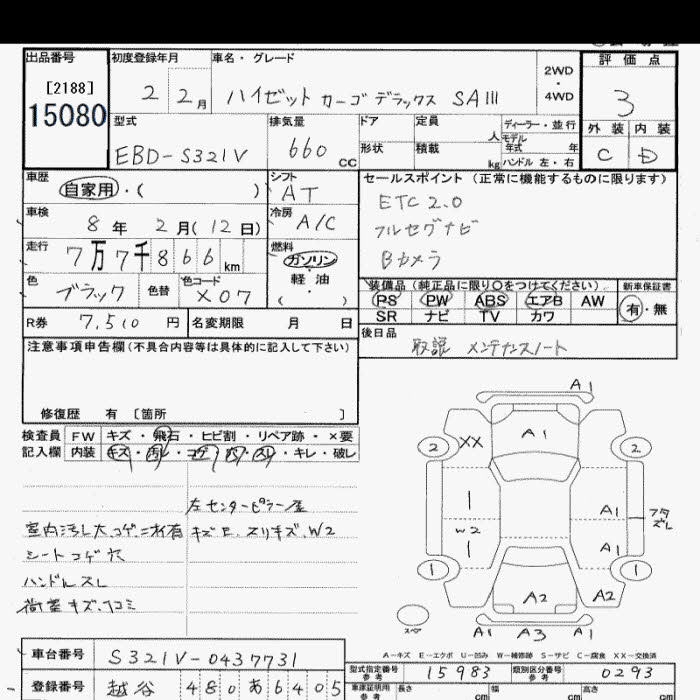 出品番号 初度登録年月 車名・グレード 評価点
[2188] 2 2月 ハイゼットカーゴデラックス SAIII 2WD・4WD 3
15080
型式 排気量 ドア 定員 人 ディーラー・並行 外装 内装
EBD-S321V 660 CC 形状 積載 kg モデル年式 年 ハンドル 左・右 C D
車歴 自家用・( ) シフト AT セールスポイント (正常に機能するものに限ります)
車検 8年 2月(12日) 冷房 A/C ETC2.0
走行 7万7千866km 燃料 ガソリン 軽油 ( ) フルセグナビ
Bカメラ
色 ブラック 色替 色コード X07 装備品 (純正品に限り○をつけてください) 新車保証書
PS PW ABS エアB AW 有・無
R券 7,510円 名変期限 月 日 SR ナビ TV カワ
注意事項申告欄(不具合内容等は具体的に記入して下さい) 後日品
取説 メンテナンスノート
修復歴 有 [箇所 ]
検査員 FW キズ・飛石・ヒビ割・リペア跡・×要
記入欄 内装 キズ・汚レ・コゲ・穴・スレ・キレ・破レ
左センターピラー
室内汚レ大 コゲ 有 キズE、スリキズ、W2
シートコゲ穴
ハンドルスレ
荷室キズ、凹コミ
A1
2 XX A1 2
A1
W2
A1
1 1
A2 A2
スペア A1 A3 A1
A-キズ E-エクボ U-凹み W-補修跡 S-サビ C-腐食 XX-交換済
車台番号 S321V-0437731
型式指定番号 参考 15983 類別区分番号 参考 0293
登録番号 越谷 480あ6405 車庫証明用 参考 長さ cm 幅 cm 高さ cm